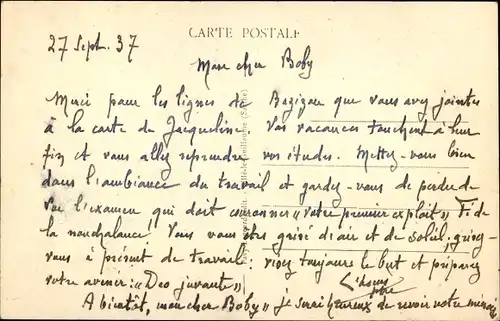 CARTE POSTALE
27 Sept. 37
Mon cher Boby
Merci pour les lignes de Bazizou que vous avez jointes
à la carte de Jacqueline. Vos vacances touchent à leur
fin et vous allez reprendre vos études. Mettez-vous bien
dans l'ambiance du travail et gardez-vous de perdre de
vue l'examen qui doit couronner « votre premier exploit » Fi de
la nonchalance. Vous vous êtes grisé d'air et de soleil, grisez-
vous à présent de travail. visez toujours le but et préparez
votre avenir : « Deo juvante »
A bientôt, mon cher Boby je serai heureux de revoir votre